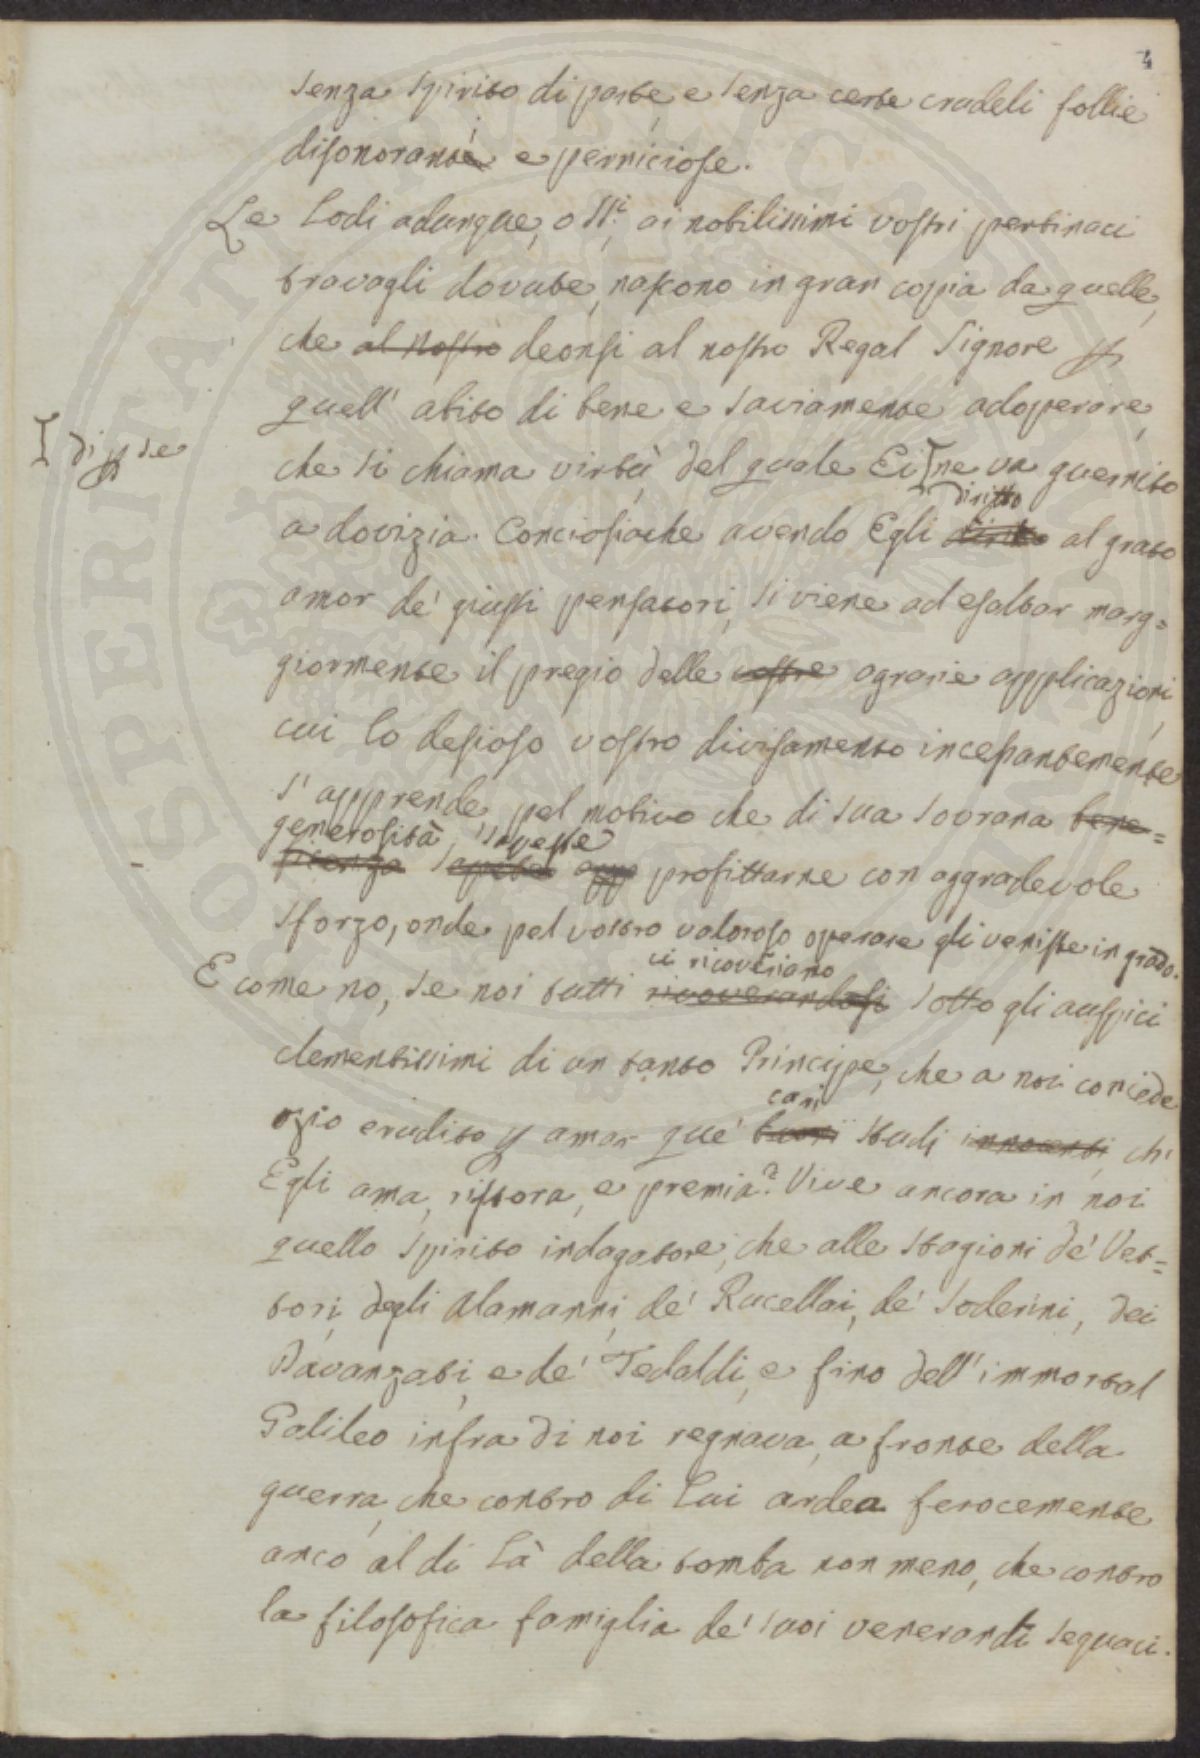 4
senza spirito di parte, e senza certe crudeli follie
disonoranti e perniciose.
Le lodi adunque, o SS.i, ai nobilissimi vostri pertinaci
travagli dovute, nascono in gran copia da quelle,
che al nostro deonsi al nostro Regal Signore per
quell' abito di bene e saviamente adoperare,
che si chiama virtù, del quale Ei ne va guernito
di per se
diritto
a dovizia. Conciosiache avendo Egli diritto al grato
amor de' giusti pensatori, si viene ad esaltar mag=
giormente il pregio delle vostre agrarie applicazioni,
cui lo desioso vostro divisamento incessantemente
s' apprende, pel motivo che di sua sovrana bene=
generosità, sapeste
ficenza sapeste profittarne con aggradevole
sforzo, onde pel vostro valoroso operare gli veniste in grado.
ci ricoveriamo
E come no, se noi tutti ricoverandosi sotto gli auspici
clementissimi di un tanto Principe, che a noi concede
cari
ozio erudito p amar que' buoni studi innocenti, ch'
Egli ama, ristora, e premia? Vive ancora in noi
quello spirito indagatore, che alle stagioni de' Vet=
tori, degli Alamanni, de' Rucellai, de' Soderini, dei
Davanzati, e de' Tedaldi, e fino dell' immortal
Galileo infra di noi regnava, a fronte della
guerra, che contro di Lui ardea ferocemente
anco al di là della tomba non meno, che contro
la filosofica famiglia de' suoi venerandi seguaci.
PROSPERITATI PUBLICAE